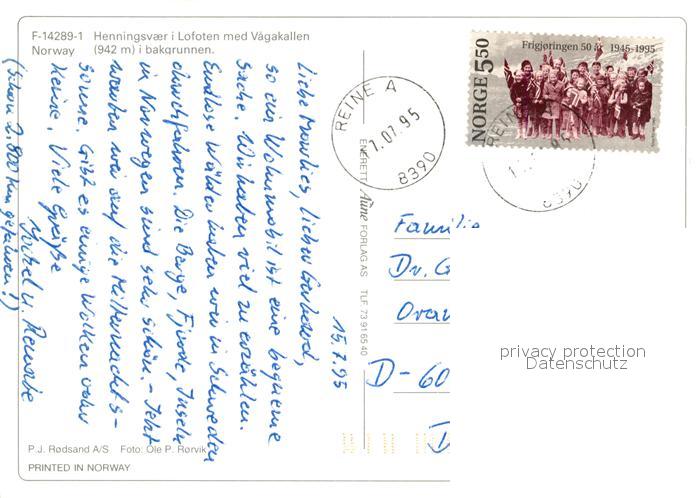 F-14289-1 Henningsvær i Lofoten med Vågakallen
Norway (942 m) i bakgrunnen.
Frigjøringen 50 år 1945-1995
NORGE 5.50
REINE A
17.07.95
8390
15.7.95
Liebe Marlies, lieber Gerhard,
so ein Wohnmobil ist eine bequeme
Sache. Wir haben viel zu erzählen.
Endlose Wälder haben wir in Schweden
durchfahren. Die Berge, Fjorde, Inseln
in Norwegen sind sehr schön. - Jetzt
warten wir auf die Mitternachts-
sonne. Gibt es einige Wolken oder
keine. Viele Grüße
u. Renate
(Schon 2.800 km gefahren!)
ENERETT Aune FORLAG AS TLF 73 91 65 40
Familie
Dr. G
D-60
D
P.J. Rødsand A/S Foto: Ole P. Rørvik
PRINTED IN NORWAY
privacy protection
Datenschutz